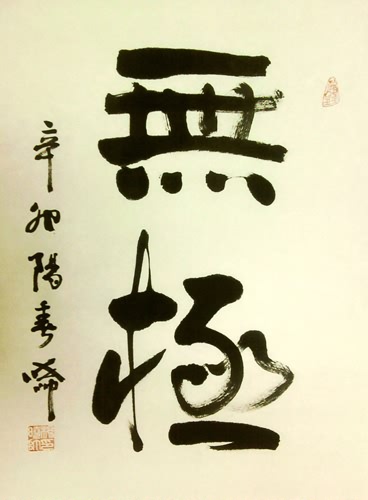 無極
辛卯陽春